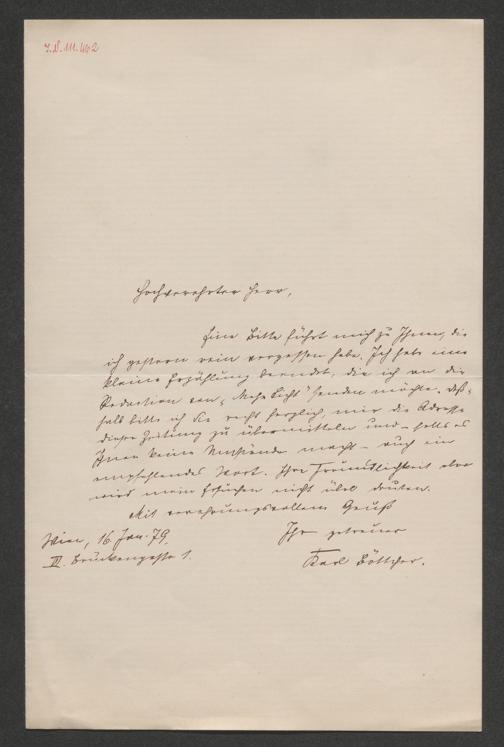 I.N. 111.462
Hochverehrter Herr,
Eine Bitte führt mich zu Ihnen, die
ich gestern rein vergessen habe. Ich habe eine
kleine Erzählung beendet, die ich an die
Redaction von „Mehr Licht“ senden möchte. Deß-
halb bitte ich Sie recht herzlich, mir die Adresse
dieser Zeitung zu übermitteln und – falls es
Ihnen keine Umstände macht – auch ein
empfehlendes Wort. Ihre Freundlichkeit aber
wird mein Ersuchen nicht übel deuten.
Mit verehrungsvollem Gruß
Ihr getreuer
Karl Böttcher.
Wien, 16 Jan. 79.
III. Brückengasse 1.